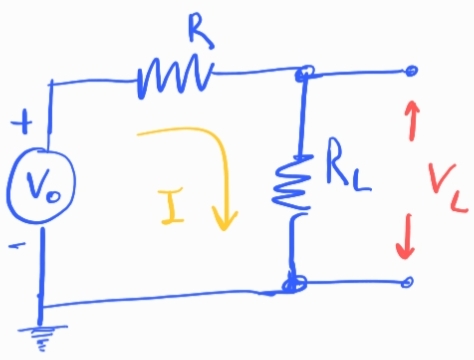 R
+
V₀
-
I
R_L
V_L